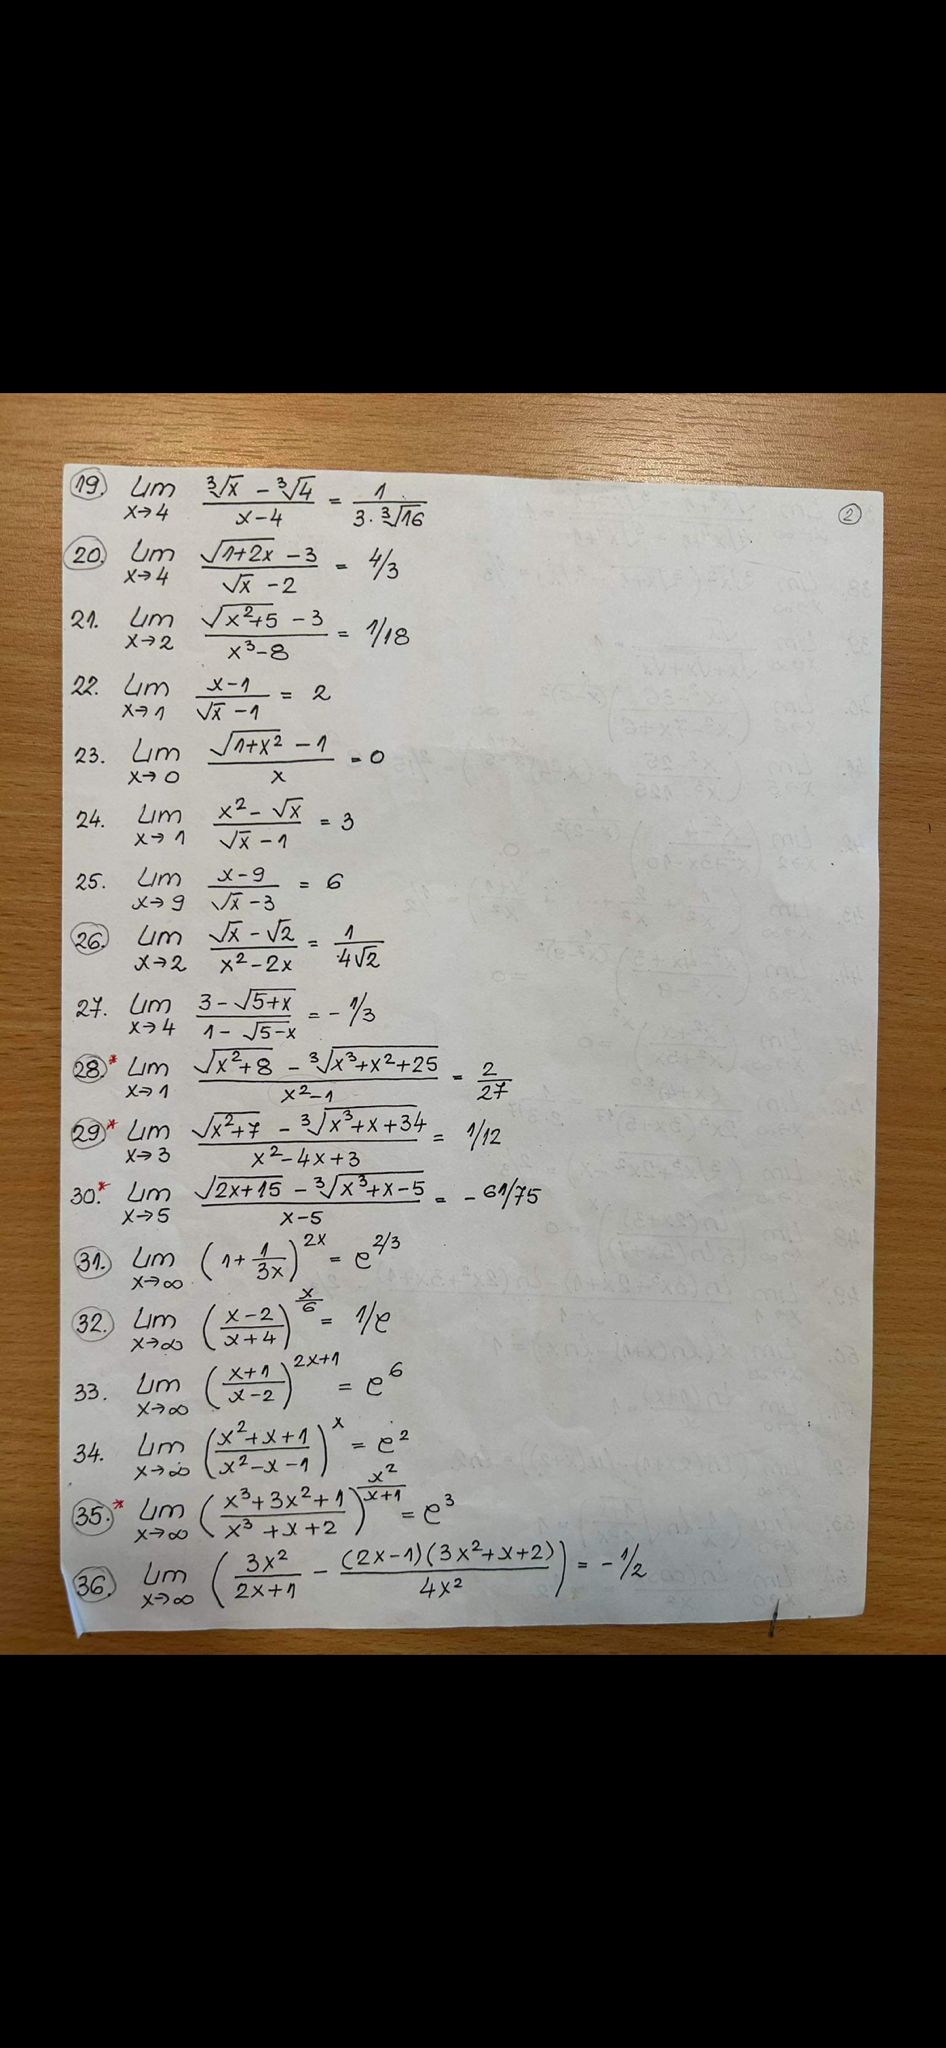 ②
19. lim x→4 (∛x − ∛4)/(x−4) = 1/(3·∛16)
20. lim x→4 (√(1+2x) − 3)/(√x − 2) = 4/3
21. lim x→2 (√(x²+5) − 3)/(x³−8) = 1/18
22. lim x→1 (x−1)/(√x −1) = 2
23. lim x→0 (√(1+x²) − 1)/x = 0
24. lim x→1 (x² − √x)/(√x − 1) = 3
25. lim x→9 (x−9)/(√x −3) = 6
26. lim x→2 (√x − √2)/(x² − 2x) = 1/(4√2)
27. lim x→4 (3 − √(5+x))/(1 − √(5−x)) = −1/3
28.* lim x→1 (√(x²+8) − ∛(x³+x²+25))/(x²−1) = 2/27
29.* lim x→3 (√(x²+7) − ∛(x³+x+34))/(x²−4x+3) = 1/12
30.* lim x→5 (√(2x+15) − ∛(x³+x−5))/(x−5) = −61/75
31. lim x→∞ (1 + 1/(3x))^(2x) = e^(2/3)
32. lim x→∞ ((x−2)/(x+4))^(x/6) = 1/e
33. lim x→∞ ((x+1)/(x−2))^(2x+1) = e⁶
34. lim x→∞ ((x²+x+1)/(x²−x−1))^x = e²
35.* lim x→∞ ((x³+3x²+1)/(x³+x+2))^(x²/(x+1)) = e³
36. lim x→∞ (3x²/(2x+1) − (2x−1)(3x²+x+2)/(4x²)) = −1/2